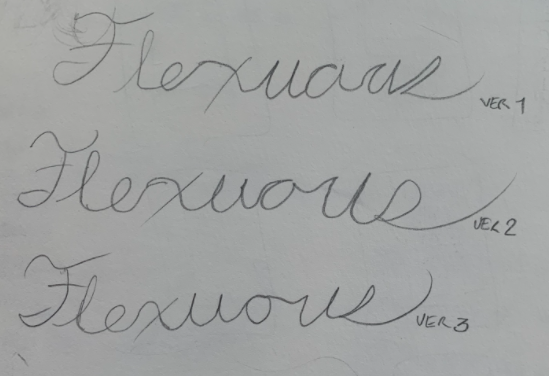 Flexuous VER 1
Flexuous VER 2
Flexuous VER 3